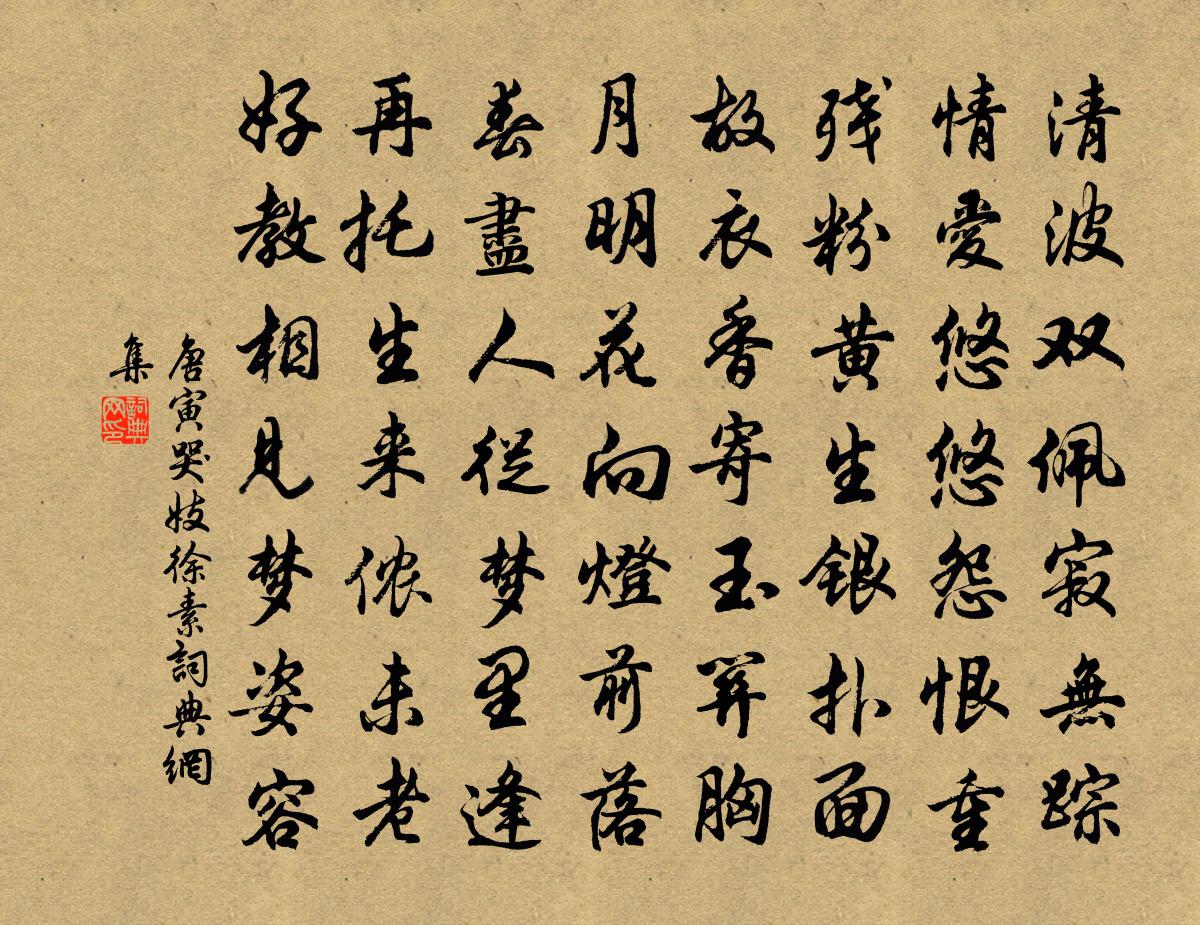 清波双佩寂無踪
情愛悠悠怨恨重
残粉黄生銀扑面
故衣香寄玉關胸
月明花向燈前落
春盡人從梦里逢
再托生来侬未老
好教相見梦姿容
唐寅哭妓徐素詞典網
集
詞典
网印